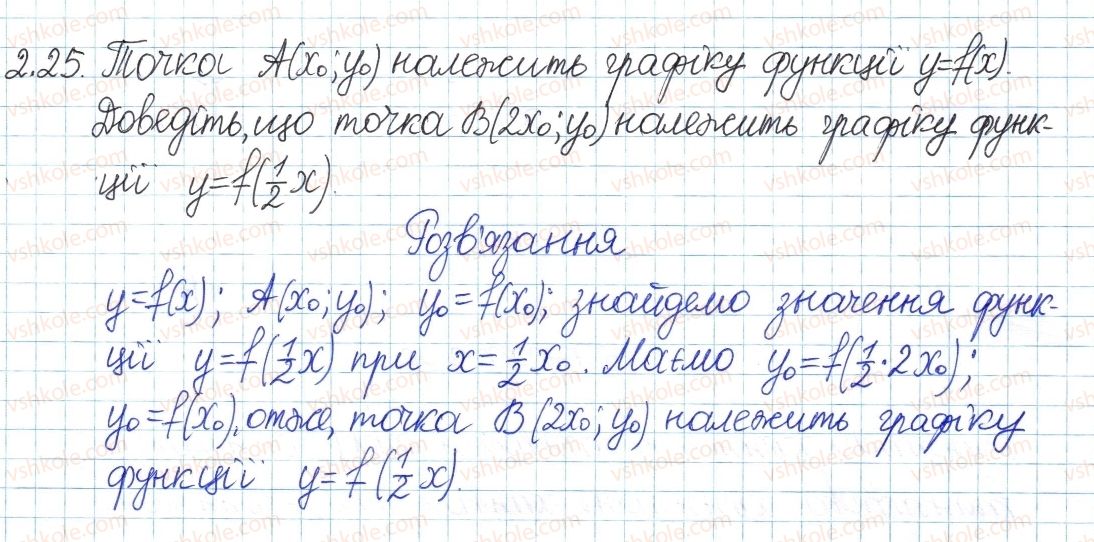 2.25. Точка A(x₀; y₀) належить графіку функції y=f(x).
Доведіть, що точка B(2x₀; y₀) належить графіку функ-
ції y=f(1/2 x).
Розв'язання
y=f(x); A(x₀; y₀); y₀=f(x₀); знайдемо значення функ-
ції y=f(1/2 x) при x=1/2 x₀. Маємо y₀=f(1/2 · 2x₀);
y₀=f(x₀), отже, точка B(2x₀; y₀) належить графіку
функції y=f(1/2 x).